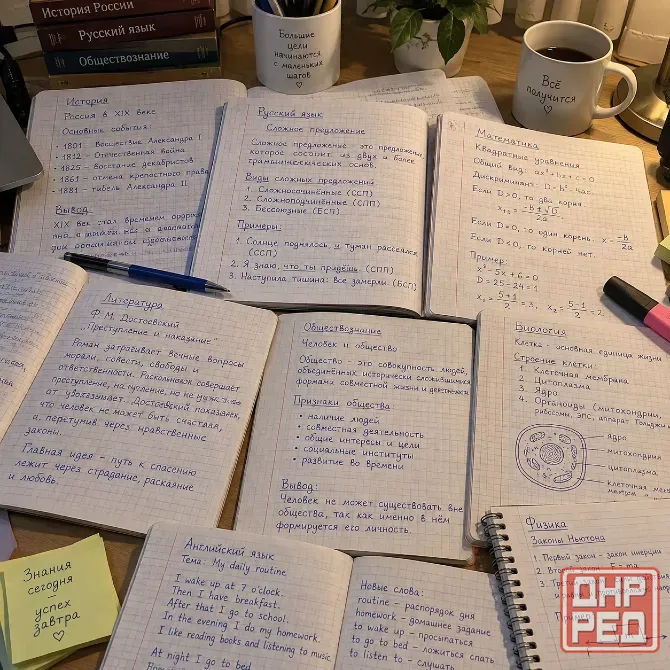 История России
Русский язык
Обществознание
Большие
цели
начинаются
с маленьких
шагов
Всё
получится
История
Россия в XIX веке
Основные события:
- 1801 - Восшествие Александра I
- 1812 - Отечественная война
- 1825 - Восстание декабристов
- 1861 - отмена крепостного права
- 1881 - гибель Александра II
Вывод:
XIX век стал временем
Русский язык
Сложное предложение
Сложное предложение - это предложение,
которое состоит из двух и более
грамматических основ.
Виды сложных предложений
1. Сложносочинённые (ССП)
2. Сложноподчинённые (СПП)
3. Бессоюзные (БСП)
Примеры:
1. Солнце поднялось, и туман рассеялся
(ССП)
2. Я знаю, что ты придёшь. (СПП)
3. Наступила тишина: все замерли. (БСП)
Математика
Квадратные уравнения
Общий вид: ax² + bx + c = 0
Дискриминант: D = b² - 4ac
Если D > 0, то два корня:
x₁,₂ = (-b ± √D)/2a
Если D = 0, то один корень: x = -b/2a
Если D < 0, то корней нет.
Пример:
x² - 5x + 6 = 0
D = 25 - 24 = 1
x₁ = (5+1)/2 = 3, x₂ = (5-1)/2 = 2
Литература
Ф. М. Достоевский
"Преступление и наказание"
Роман затрагивает вечные вопросы
морали, совести, свободы и
ответственности. Раскольников совершает
преступление, но
Достоевский показывает,
что человек не может быть счастлив,
переступив через нравственные
законы.
Главная идея - путь к спасению
лежит через страдание, раскаяние
и любовь.
Обществознание
Человек и общество
Общество - это совокупность людей,
объединённых исторически сложившимися
формами совместной жизни и деятельности
Признаки общества
• наличие людей
• совместная деятельность
• общие интересы и цели
• социальные институты
• развитие во времени
Вывод:
Человек не может существовать вне
общества, так как именно в нём
формируется его личность.
Биология
Клетка - основная единица жизни
Строение клетки:
1. Клеточная мембрана
2. Цитоплазма
3. Ядро
4. Органоиды (митохондрии,
рибосомы, ЭПС, аппарат Гольджи
ядро
митохондрии
цитоплазма
клеточная
Знания
сегодня
-
успех
завтра
Английский язык
Тема: My daily routine
I wake up at 7 o'clock.
Then I have breakfast.
After that I go to school.
In the evening I do my homework.
I like reading books and listening to music
At night I go to bed
Новые слова:
routine - распорядок дня
homework - домашнее задание
to wake up - просыпаться
to go to bed - ложиться спать
to listen to - слушать
Физика
Законы Ньютона
1. Первый закон - закон инерции
2. Второй закон - F = ma
3.
ДНР
РЕД